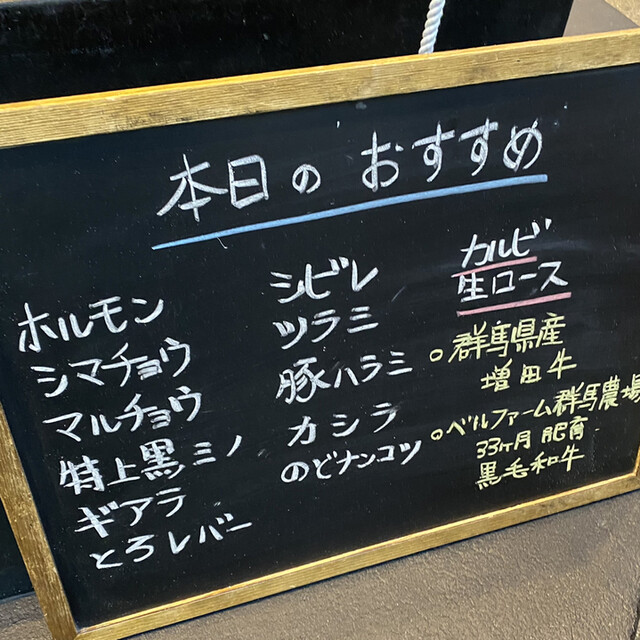 本日の おすすめ
ホルモン
シマチョウ
マルチョウ
特上黒ミノ
ギアラ
とろレバー
シビレ
ツラミ
豚ハラミ
カシラ
のどナンコツ
カルビ
生ロース
○群馬県産
増田牛
○ベルファーム群馬農場
33ヶ月肥育
黒毛和牛